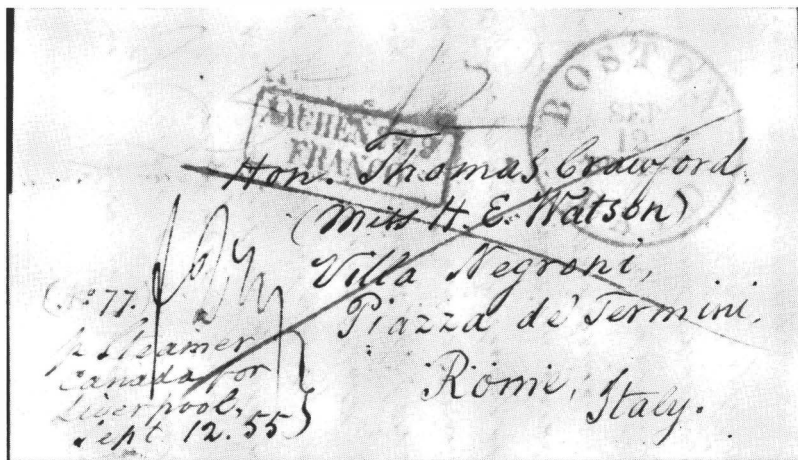 BOSTON
SEP
12
AACHEN
FRANCO
Hon. Thomas Crawford.
(Miss H. E. Watson)
Villa Negroni,
Piazza de' Termini.
Rome,
Italy.
(No 77.
p Steamer
Canada for
Liverpool,
Sept 12. 55